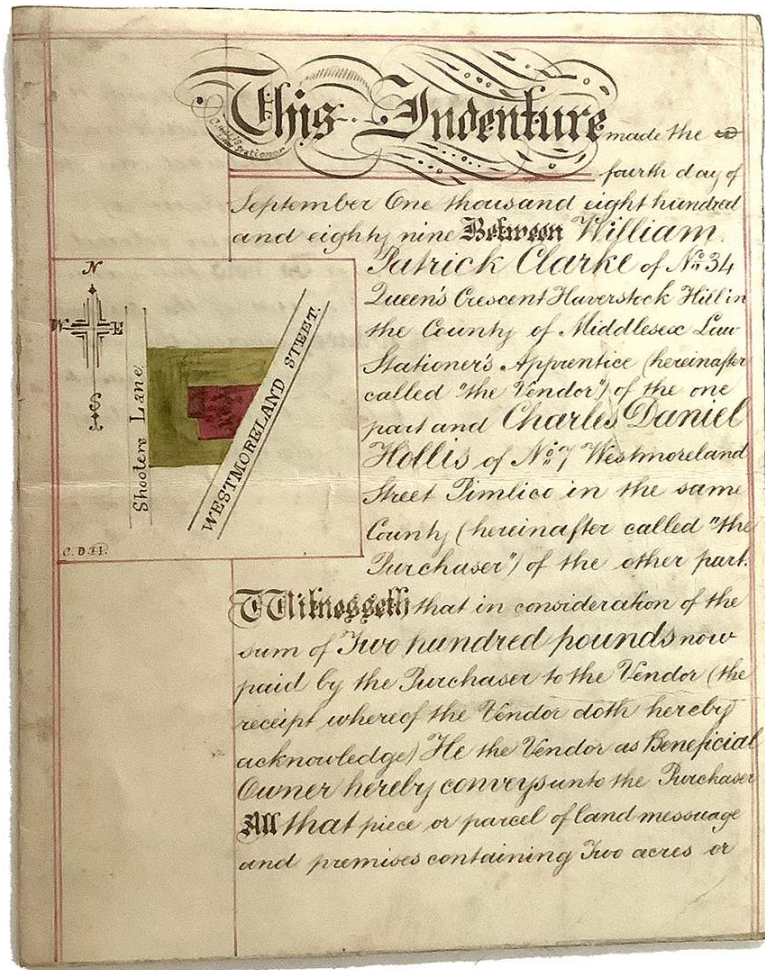 This Indenture made the
fourth day of
September One thousand eight hundred
and eighty nine Between William
Patrick Clarke of No. 34
Queen's Crescent Haverstock Hill in
the County of Middlesex Law
Stationer's Apprentice (hereinafter
called "the Vendor") of the one
part and Charles Daniel
Hollis of No. 7 Westmoreland
Street Pimlico in the same
County (hereinafter called "the
Purchaser") of the other part.
Witnesseth that in consideration of the
sum of Two hundred pounds now
paid by the Purchaser to the Vendor (the
receipt whereof the Vendor doth hereby
acknowledge) He the Vendor as Beneficial
Owner hereby conveys unto the Purchaser
All that piece or parcel of land messuage
and premises containing Two acres or
N
W E
S
Shooters Lane
WESTMORELAND STEET.
C.D.H.